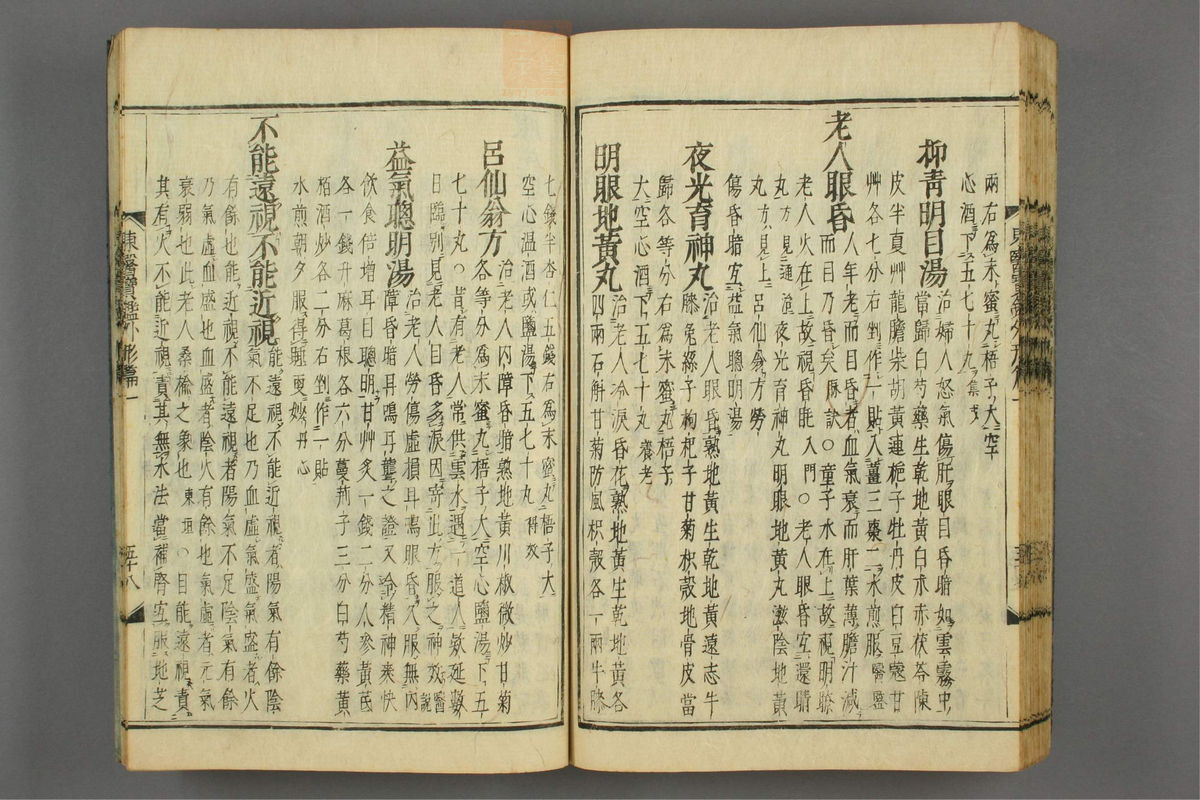 兩右爲末蜜丸梧子大空
心酒下五七十丸集
抑青明目湯
治婦人怒氣傷肝眼目昏暗如雲霧中
當歸白芍藥生乾地黃白朮赤茯苓陳
皮半夏艸龍膽柴胡黃連梔子牡丹皮白豆蔲甘
艸各七分右剉作一貼入薑三棗二水煎服醫鑑
老人眼昏
人年老而目昏者血氣衰而肝葉薄膽汁減
而目乃昏矣脈訣○童子水在上故視明瞭
老人火在上故視昏眊入門○老人眼昏宜還睛
丸方見上通夜光育神丸明眼地黃丸滋陰地黃
丸方見上呂仙翁方勞
傷昏暗宜益氣聰明湯
夜光育神丸
治老人眼昏熟地黃生乾地黃遠志牛
膝兔絲子枸杞子甘菊枳殼地骨皮當
歸各等分右爲末蜜丸梧子
大空心酒下五七十丸養老
明眼地黃丸
治老人冷淚昏花熟地黃生乾地黃各
四兩石斛甘菊防風枳殼各一兩牛膝
七錢半杏仁五錢右爲末蜜丸梧子大
空心溫酒或鹽湯下五七十丸得效
呂仙翁方
治老人內障昏暗熟地黃川椒微炒甘菊
各等分爲末蜜丸梧子大空心鹽湯下五
七十丸○昔有老人常供雲水遇一道人欵延數
日臨別見老人目昏多淚因寄此方服之神效醫說
益氣聰明湯
治老人勞傷虛損耳鳴眼昏久服無內
障昏暗耳鳴耳聾之證又令精神爽快
飲食倍增耳目聰明甘艸炙一錢二分人參黃芪
各一錢升麻葛根各六分蔓荊子三分白芍藥黃
栢酒炒各二分右剉作一貼
水煎朝夕服得睡更妙丹心
不能遠視不能近視
能遠視不能近視者陽氣有餘陰
氣不足也乃血虛氣盛氣盛者火
有餘也能近視不能遠視者陽氣不足陰氣有餘
乃氣虛血盛也血盛者陰火有餘也氣虛者元氣
衰弱也此老人桑楡之象也東垣○目能遠視責
其有火不能近視責其無水法當補腎宜服地芝
東醫寶鑑外形篇一
五十八